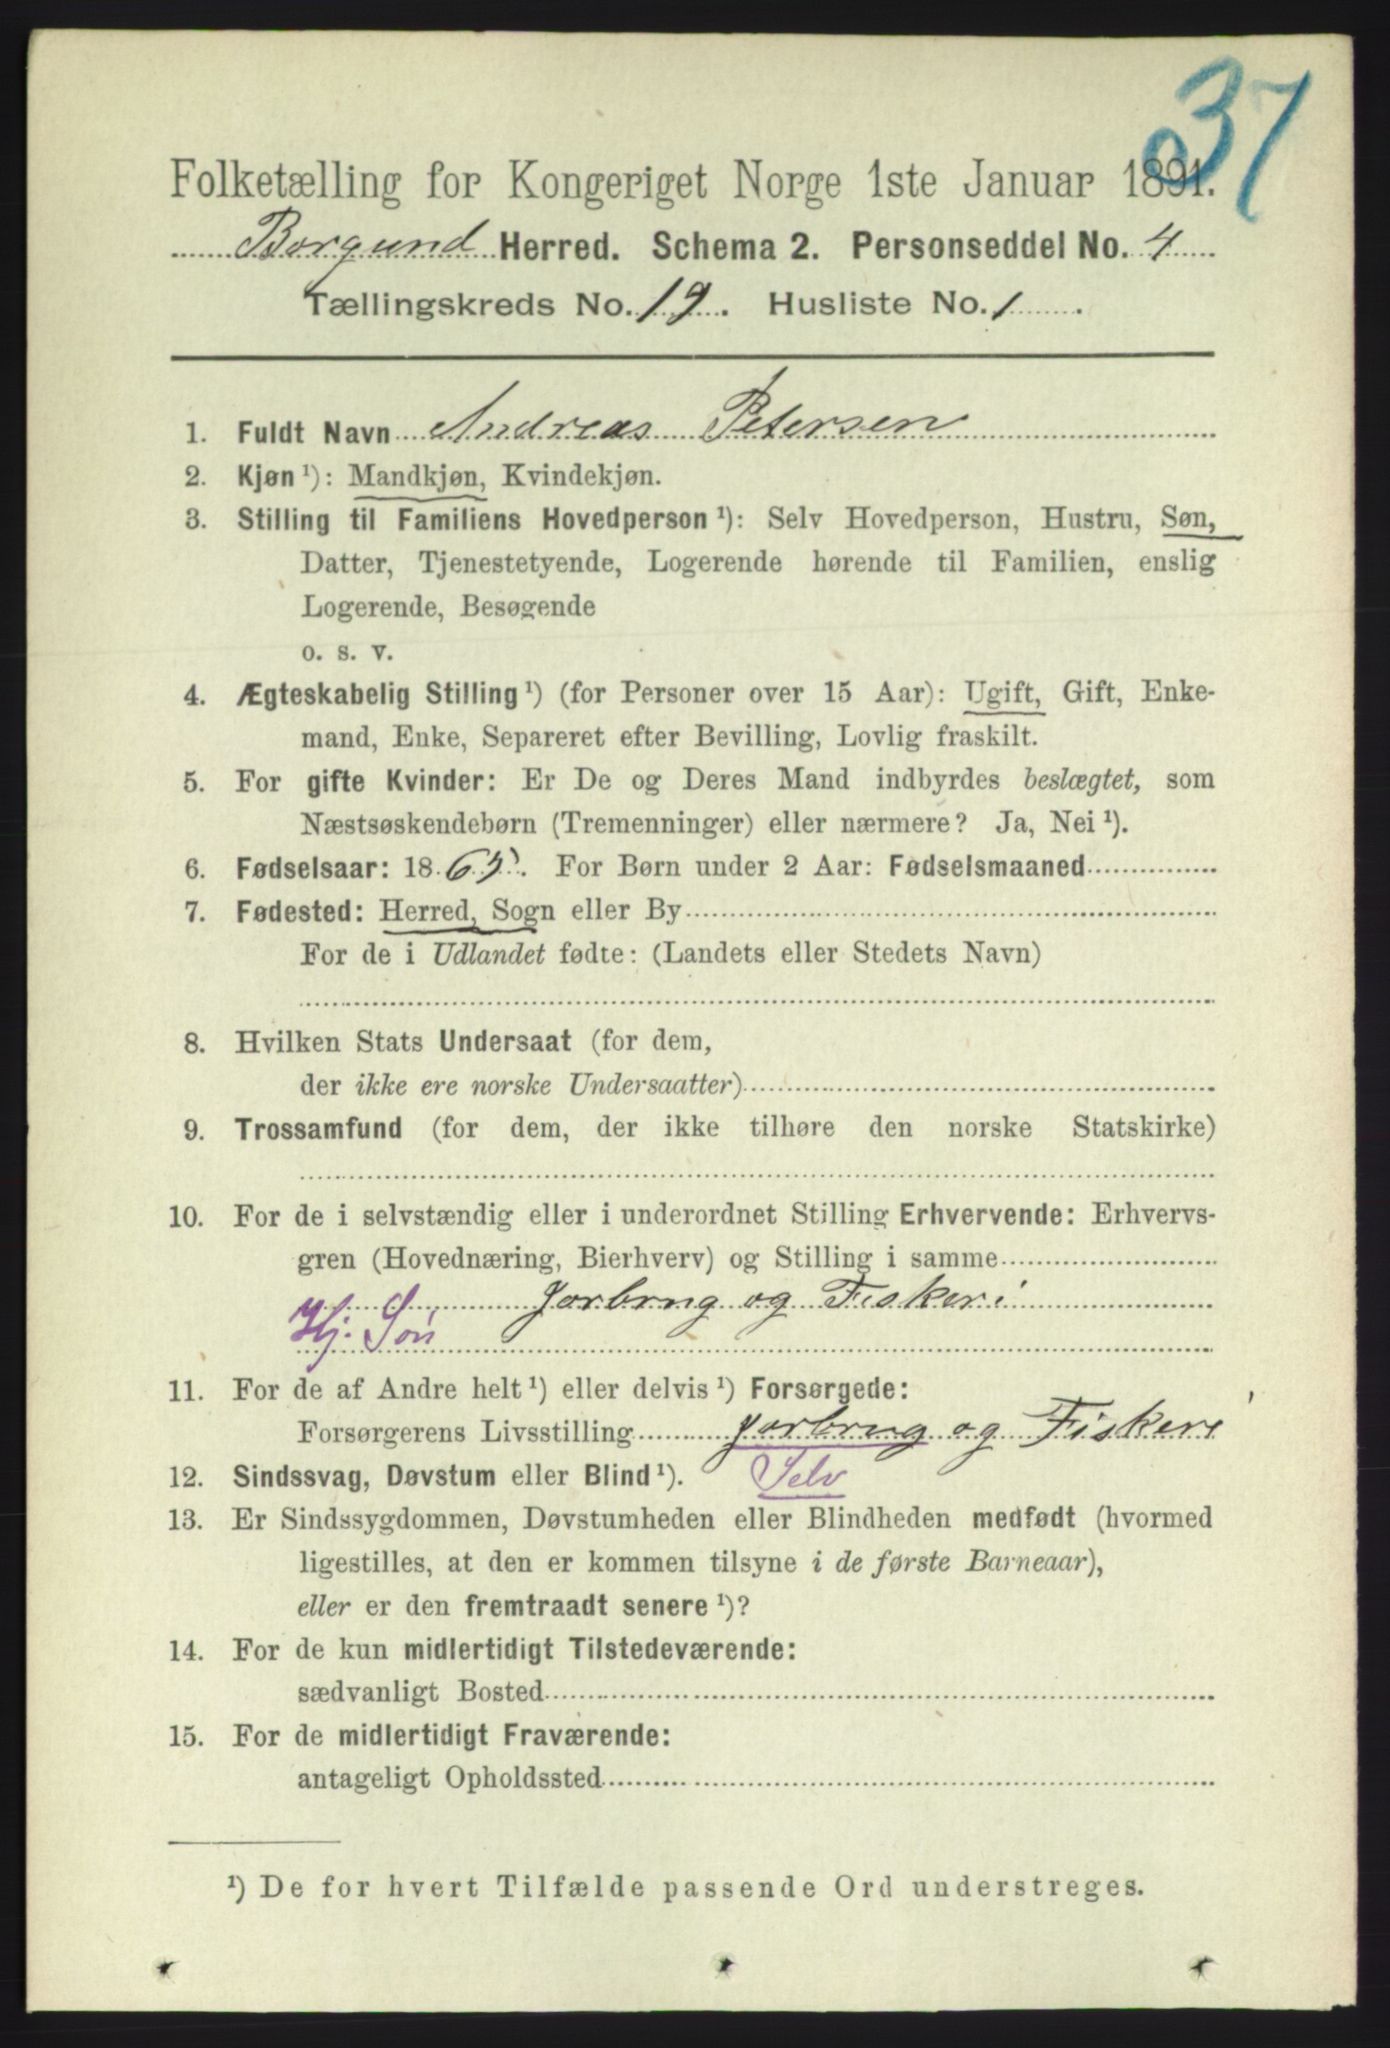 37
Folketælling for Kongeriget Norge 1ste Januar 1891.
Borgund Herred. Schema 2. Personseddel No. 4
Tællingskreds No. 19. Husliste No. 1.
1. Fuldt Navn Andreas Petersen
2. Kjøn ¹): Mandkjøn, Kvindekjøn.
3. Stilling til Familiens Hovedperson ¹): Selv Hovedperson, Hustru, Søn,
Datter, Tjenestetyende, Logerende hørende til Familien, enslig
Logerende, Besøgende
o. s. v.
4. Ægteskabelig Stilling ¹) (for Personer over 15 Aar): Ugift, Gift, Enke-
mand, Enke, Separeret efter Bevilling, Lovlig fraskilt.
5. For gifte Kvinder: Er De og Deres Mand indbyrdes beslægtet, som
Næstsøskendebørn (Tremenninger) eller nærmere? Ja, Nei ¹).
6. Fødselsaar: 1865. For Børn under 2 Aar: Fødselsmaaned
7. Fødested: Herred, Sogn eller By
For de i Udlandet fødte: (Landets eller Stedets Navn)
8. Hvilken Stats Undersaat (for dem,
der ikke ere norske Undersaatter)
9. Trossamfund (for dem, der ikke tilhøre den norske Statskirke)
10. For de i selvstændig eller i underordnet Stilling Erhvervende: Erhvervs-
gren (Hovednæring, Bierhverv) og Stilling i samme
Jorbrug og Fiskeri
Hj. Søn
11. For de af Andre helt ¹) eller delvis ¹) Forsørgede:
Forsørgerens Livsstilling Jorbrug og Fiskeri
12. Sindssvag, Døvstum eller Blind ¹). Selv
13. Er Sindssygdommen, Døvstumheden eller Blindheden medfødt (hvormed
ligestilles, at den er kommen tilsyne i de første Barneaar),
eller er den fremtraadt senere ¹)?
14. For de kun midlertidigt Tilstedeværende:
sædvanligt Bosted
15. For de midlertidigt Fraværende:
antageligt Opholdssted
¹) De for hvert Tilfælde passende Ord understreges.